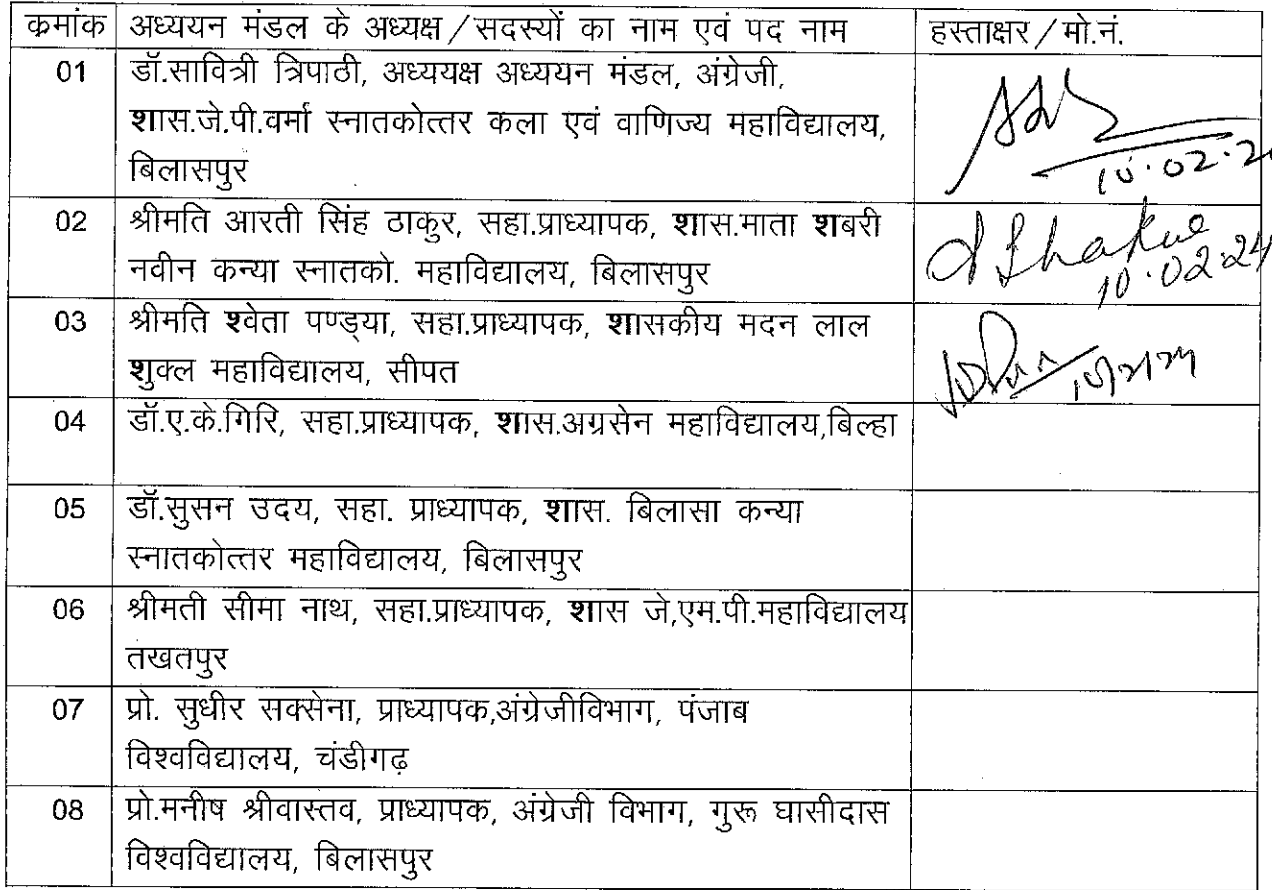 क्रमांक अध्ययन मंडल के अध्यक्ष/सदस्यों का नाम एवं पद नाम हस्ताक्षर/मो.नं.
01 डॉ.सावित्री त्रिपाठी, अध्ययक्ष अध्ययन मंडल, अंग्रेजी,
शास.जे.पी.वर्मा स्नातकोत्तर कला एवं वाणिज्य महाविद्यालय,
बिलासपुर
10.02.2
02 श्रीमति आरती सिंह ठाकुर, सहा.प्राध्यापक, शास.माता शबरी
नवीन कन्या स्नातको. महाविद्यालय, बिलासपुर
10.02.24
03 श्रीमति श्वेता पण्ड्या, सहा.प्राध्यापक, शासकीय मदन लाल
शुक्ल महाविद्यालय, सीपत
04 डॉ.ए.के.गिरि, सहा.प्राध्यापक, शास.अग्रसेन महाविद्यालय,बिल्हा
05 डॉ.सुसन उदय, सहा. प्राध्यापक, शास. बिलासा कन्या
स्नातकोत्तर महाविद्यालय, बिलासपुर
06 श्रीमती सीमा नाथ, सहा.प्राध्यापक, शास जे,एम.पी.महाविद्यालय
तखतपुर
07 प्रो. सुधीर सक्सेना, प्राध्यापक,अंग्रेजीविभाग, पंजाब
विश्वविद्यालय, चंडीगढ़
08 प्रो.मनीष श्रीवास्तव, प्राध्यापक, अंग्रेजी विभाग, गुरू घासीदास
विश्वविद्यालय, बिलासपुर